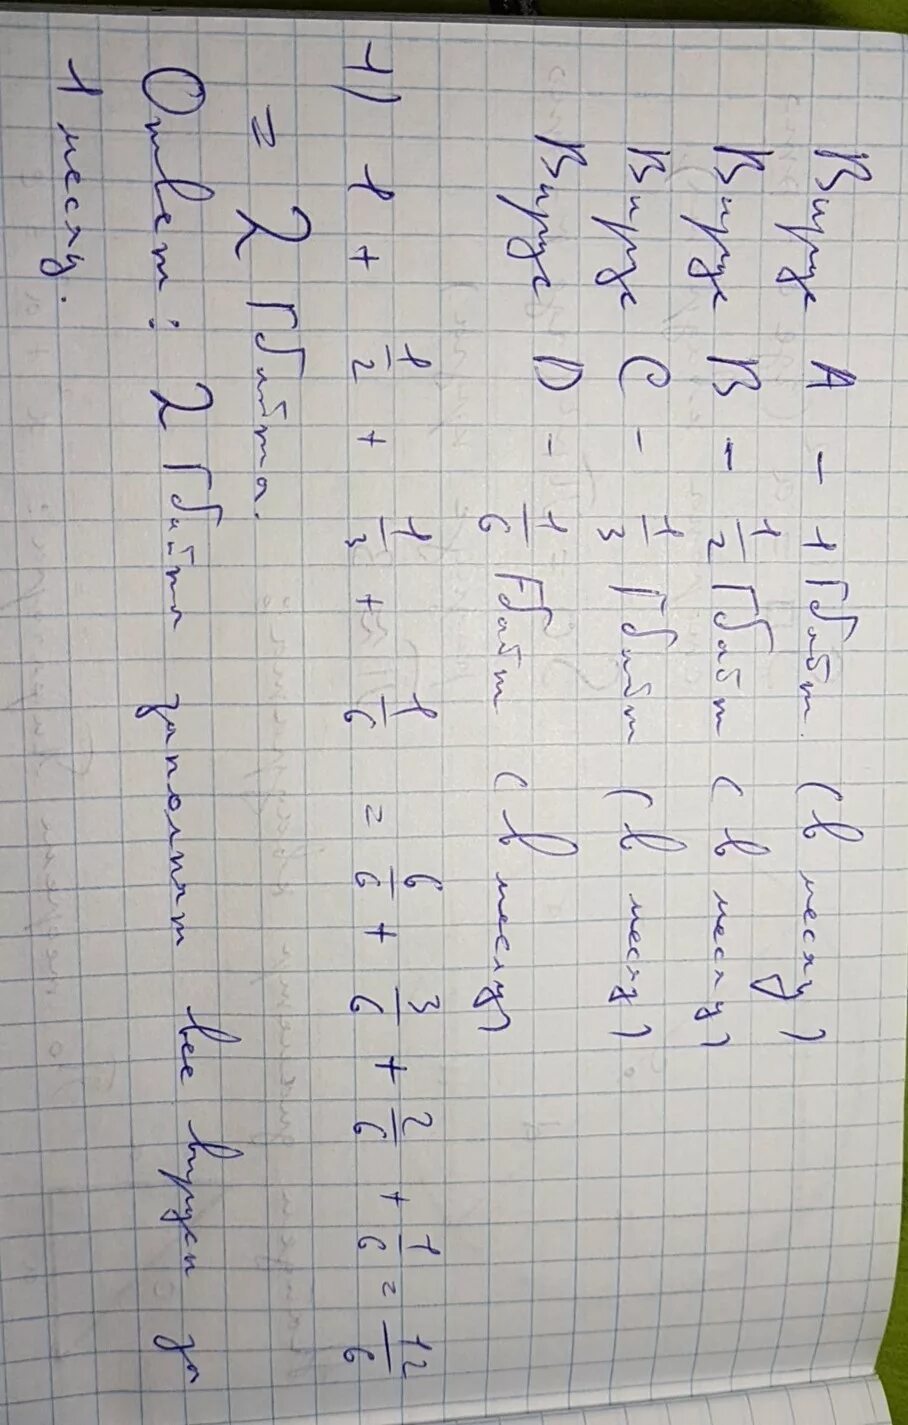 Вирус A - 1 Гбайт. (в месяц)
Вирус B - 1/2 Гбайт (в месяц)
Вирус C - 1/3 Гбайт (в месяц)
Вирус D - 1/6 Гбайт (в месяц)
1) 1 + 1/2 + 1/3 + 1/6 = 6/6 + 3/6 + 2/6 + 1/6 = 12/6
= 2 Гбайта.
Ответ: 2 Гбайта заполнят все вирусы за
1 месяц.